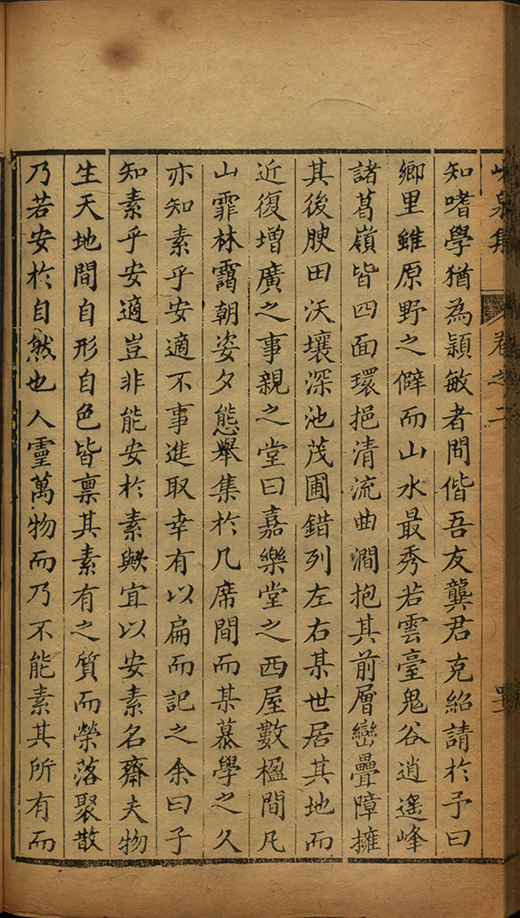 峴泉集
卷之二
知嗜學猶為頴敏者間偕吾友龔君克紹請於予曰
鄉里雖原野之僻而山水最秀若雲臺鬼谷逍遙峰
諸葛嶺皆四面環挹清流曲澗抱其前層巒疊障擁
其後腴田沃壤深池茂圃錯列左右某世居其地而
近復增廣之事親之堂曰嘉樂堂之西屋數楹間凡
山霏林靄朝姿夕態舉集於几席間而某慕學之久
亦知素乎安適不事進取幸有以扁而記之余曰子
知素乎安適豈非能安於素歟宜以安素名齋夫物
生天地間自形自色皆禀其素有之質而榮落聚散
乃若安於自然也人靈萬物而乃不能素其所有而